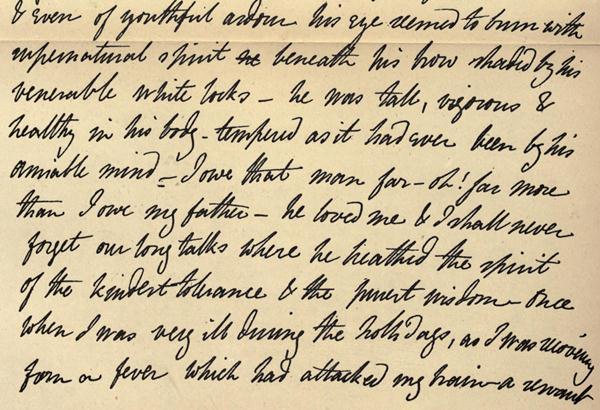 & even of youthful ardour his eye seemed to burn with
supernatural spirit beneath his brow shaded by his
venerable white locks – he was tall, vigorous &
healthy in his body – tempered as it had ever been by his
amiable mind – I owe that man far – oh! far more
than I owe my father – he loved me & I shall never
forget our long talks where he breathed the spirit
of the kindest tolerance & the purest wisdom – Once
when I was very ill during the holidays, as I was recovering
from a fever which had attacked my brain – a servant